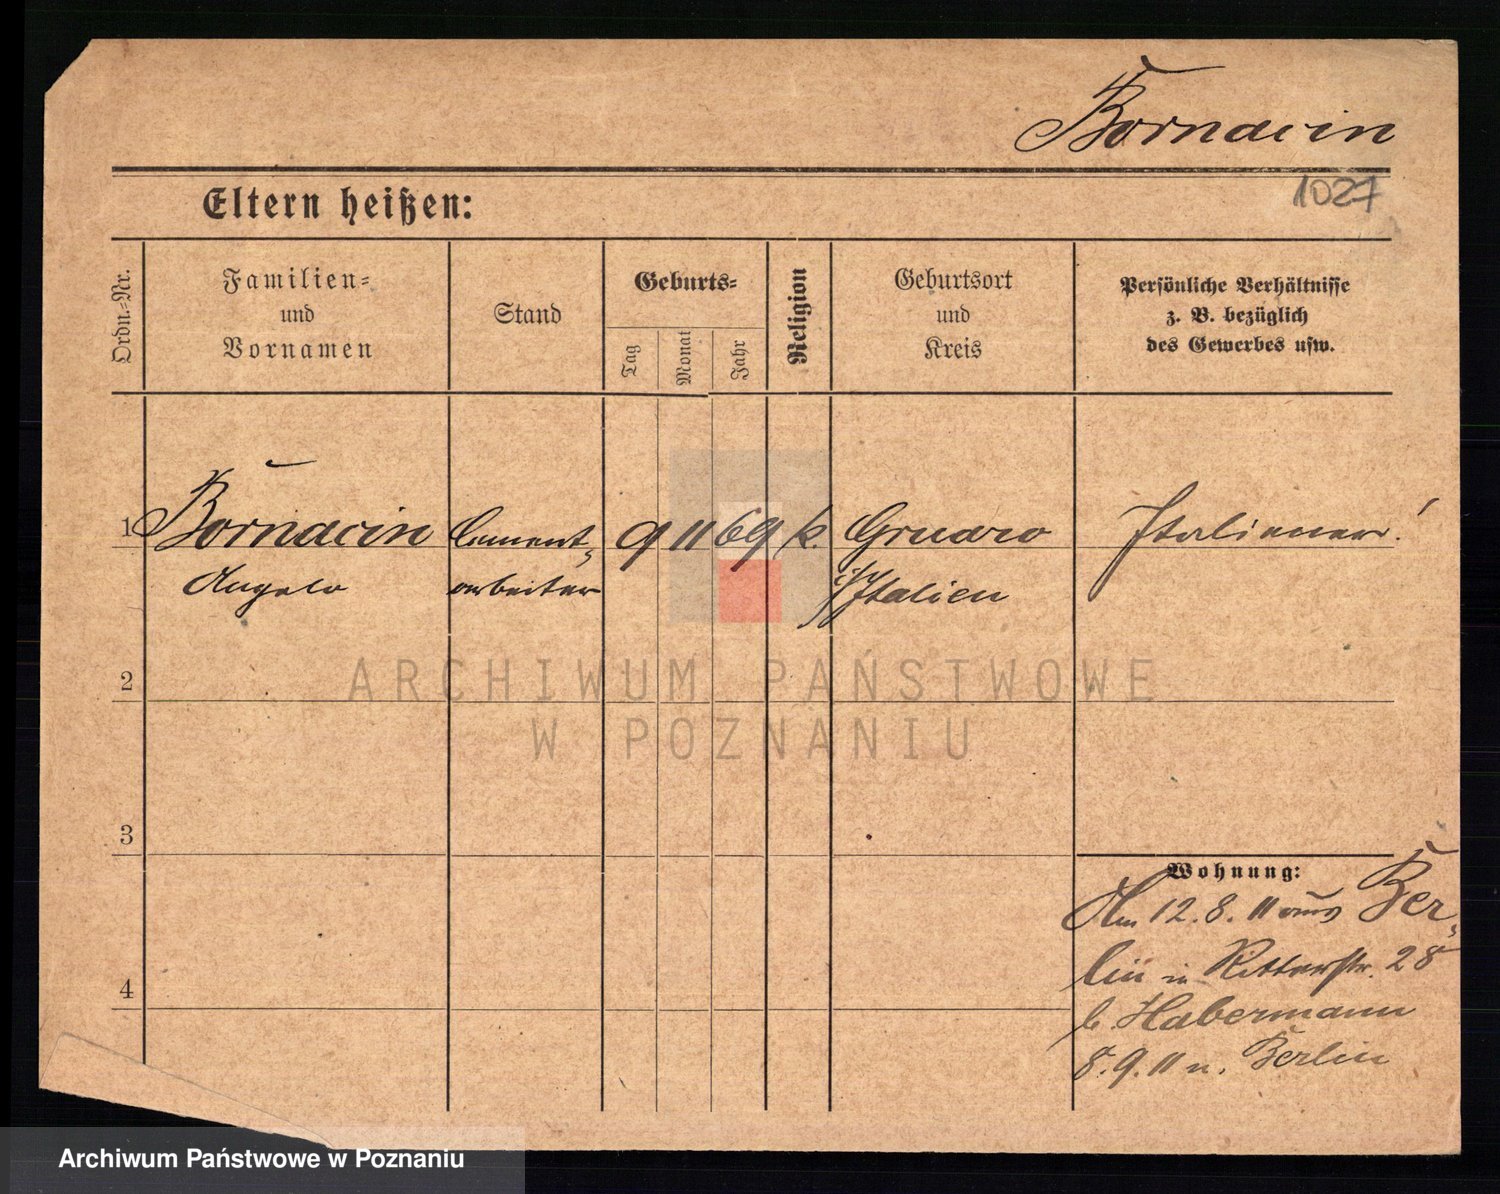 Bornacin
1027
Eltern heißen:
Ordn.-Nr.
Familien-
und
Vornamen
Stand
Geburts-
Tag
Monat
Jahr
Religion
Geburtsort
und
Kreis
Persönliche Verhältnisse
z. B. bezüglich
des Gewerbes usw.
1 Bornacin Cement- 9 11 69 k. Gruaro Italiener!
Angelo arbeiter Italien
2
3
Wohnung:
Am 12. 8. 11 aus Ber-
lin in Ritterstr. 28
4
b. Habermann
8. 9. 11 n. Berlin
ARCHIWUM PAŃSTWOWE
W POZNANIU
Archiwum Państwowe w Poznaniu